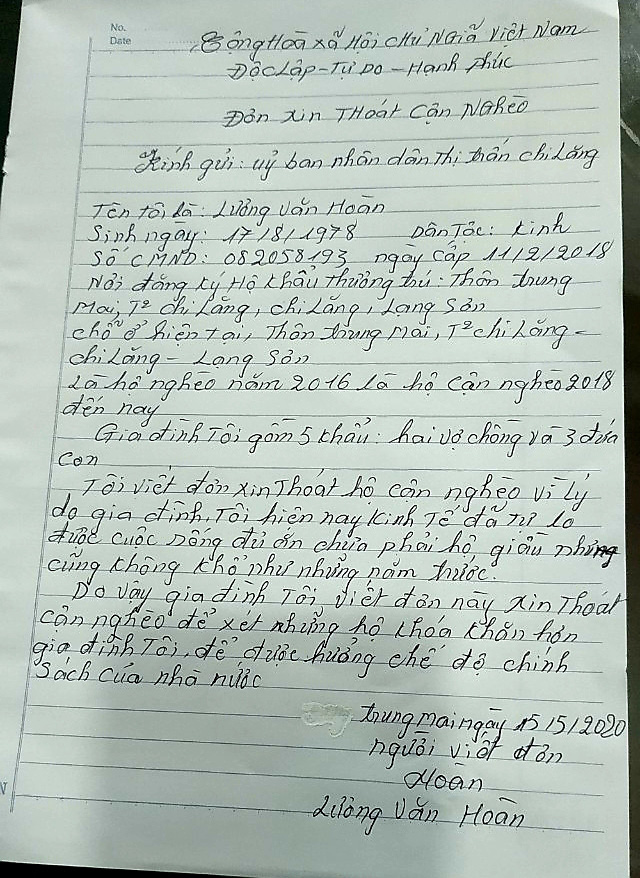 No.
Date
Cộng Hoà xã Hội chủ Nghĩã Việt Nam
Độc Lập - Tự Do - Hạnh phúc
Đơn xin THoát Cận NGHèo
Kính gửi: uỷ ban nhân dân Thị trấn chi Lăng
Tên tôi là: Lương Văn Hoàn
Sinh ngày: 17/8/1978 Dân Tộc: Kinh
Số CMND: 082058193 ngày cấp 11/2/2018
Nơi đăng ký Hộ khẩu thường trú: Thôn trung
Mai, T² chi Lăng, chi Lăng, Lạng Sơn
chỗ ở hiện tại, Thôn trung Mai, T² chi Lăng -
chi Lăng - Lạng Sơn
Là hộ nghèo năm 2016 là hộ cận nghèo 2018
đến nay
Gia đình Tôi gồm 5 khẩu: hai vợ chồng và 3 đứa
con
Tôi viết đơn xin Thoát hộ cận nghèo vì lý
do gia đình Tôi hiện nay kinh Tế đã tự lo
được cuộc sống đủ ăn chưa phải hộ giầu nhưng
cũng không khổ như những năm trước.
Do vậy gia đình Tôi viết đơn này xin Thoát
cận nghèo để xét những hộ khóa khăn hơn
gia đình Tôi, để được hưởng chế độ chính
Sách của nhà nước
trung mai ngày 15/5/2020
người viết đơn
Hoàn
Lương Văn Hoàn
N